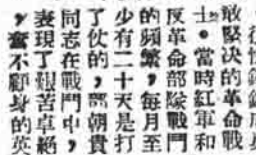 堅決的革命戰
士。當時紅軍和
反革命部隊戰鬥
的頻繁,每月至
少有二十天是打
了仗的,鄧朝貴
同志在戰鬥中,
表現了艱苦卓絕
,奮不顧身的英